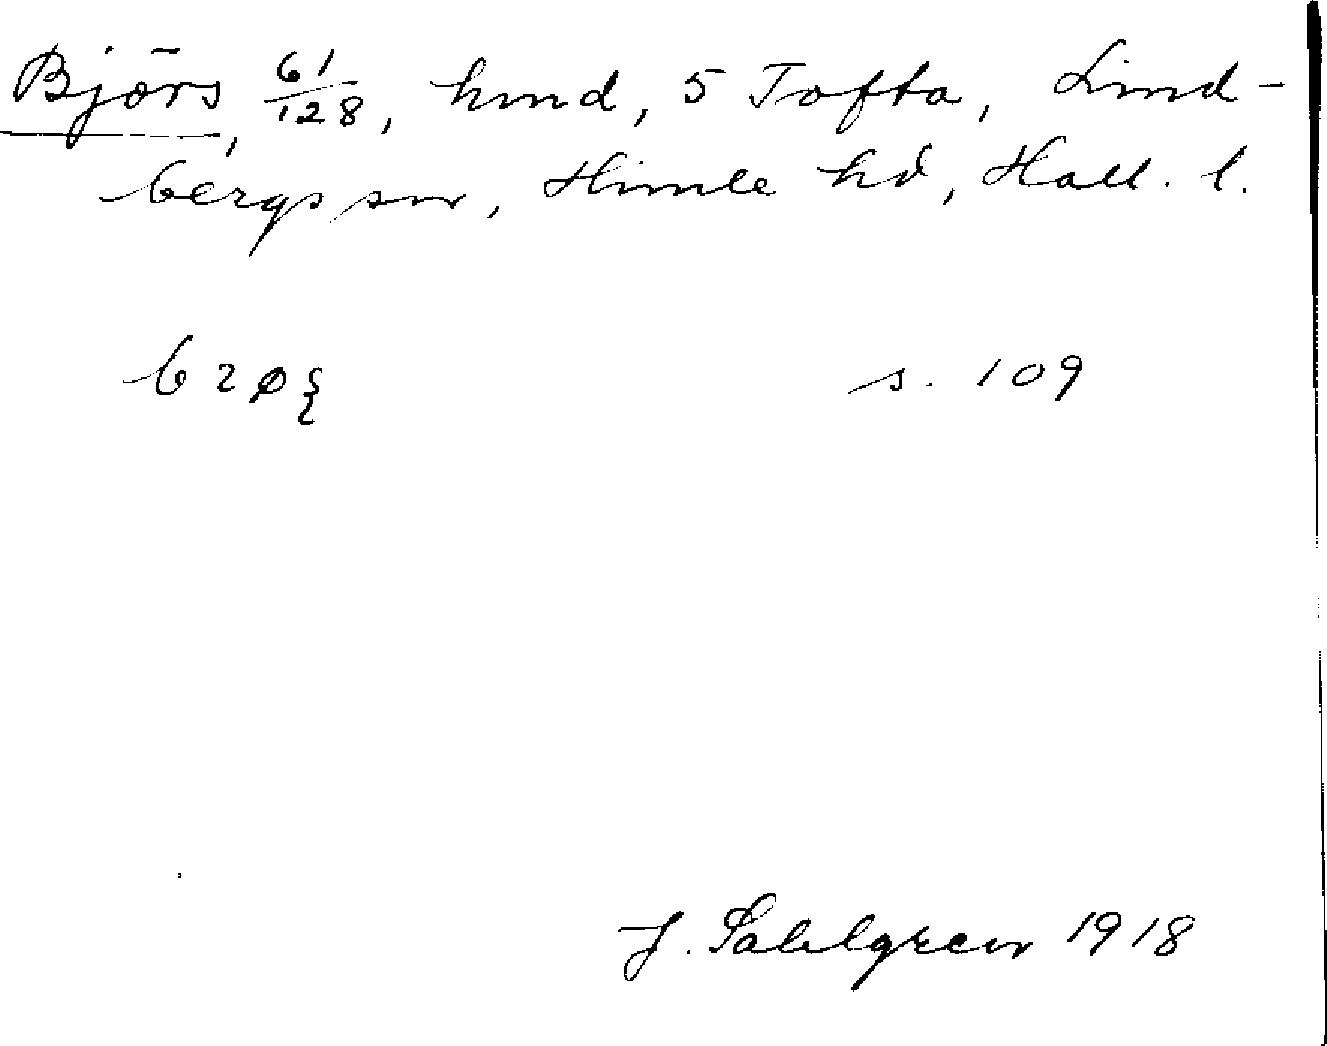 Björs, 61/128, hmd, 5 Tofta, Lind-
bergs sn, Himle hd, Hall. l.
s. 109
J. Sahlgren 1918